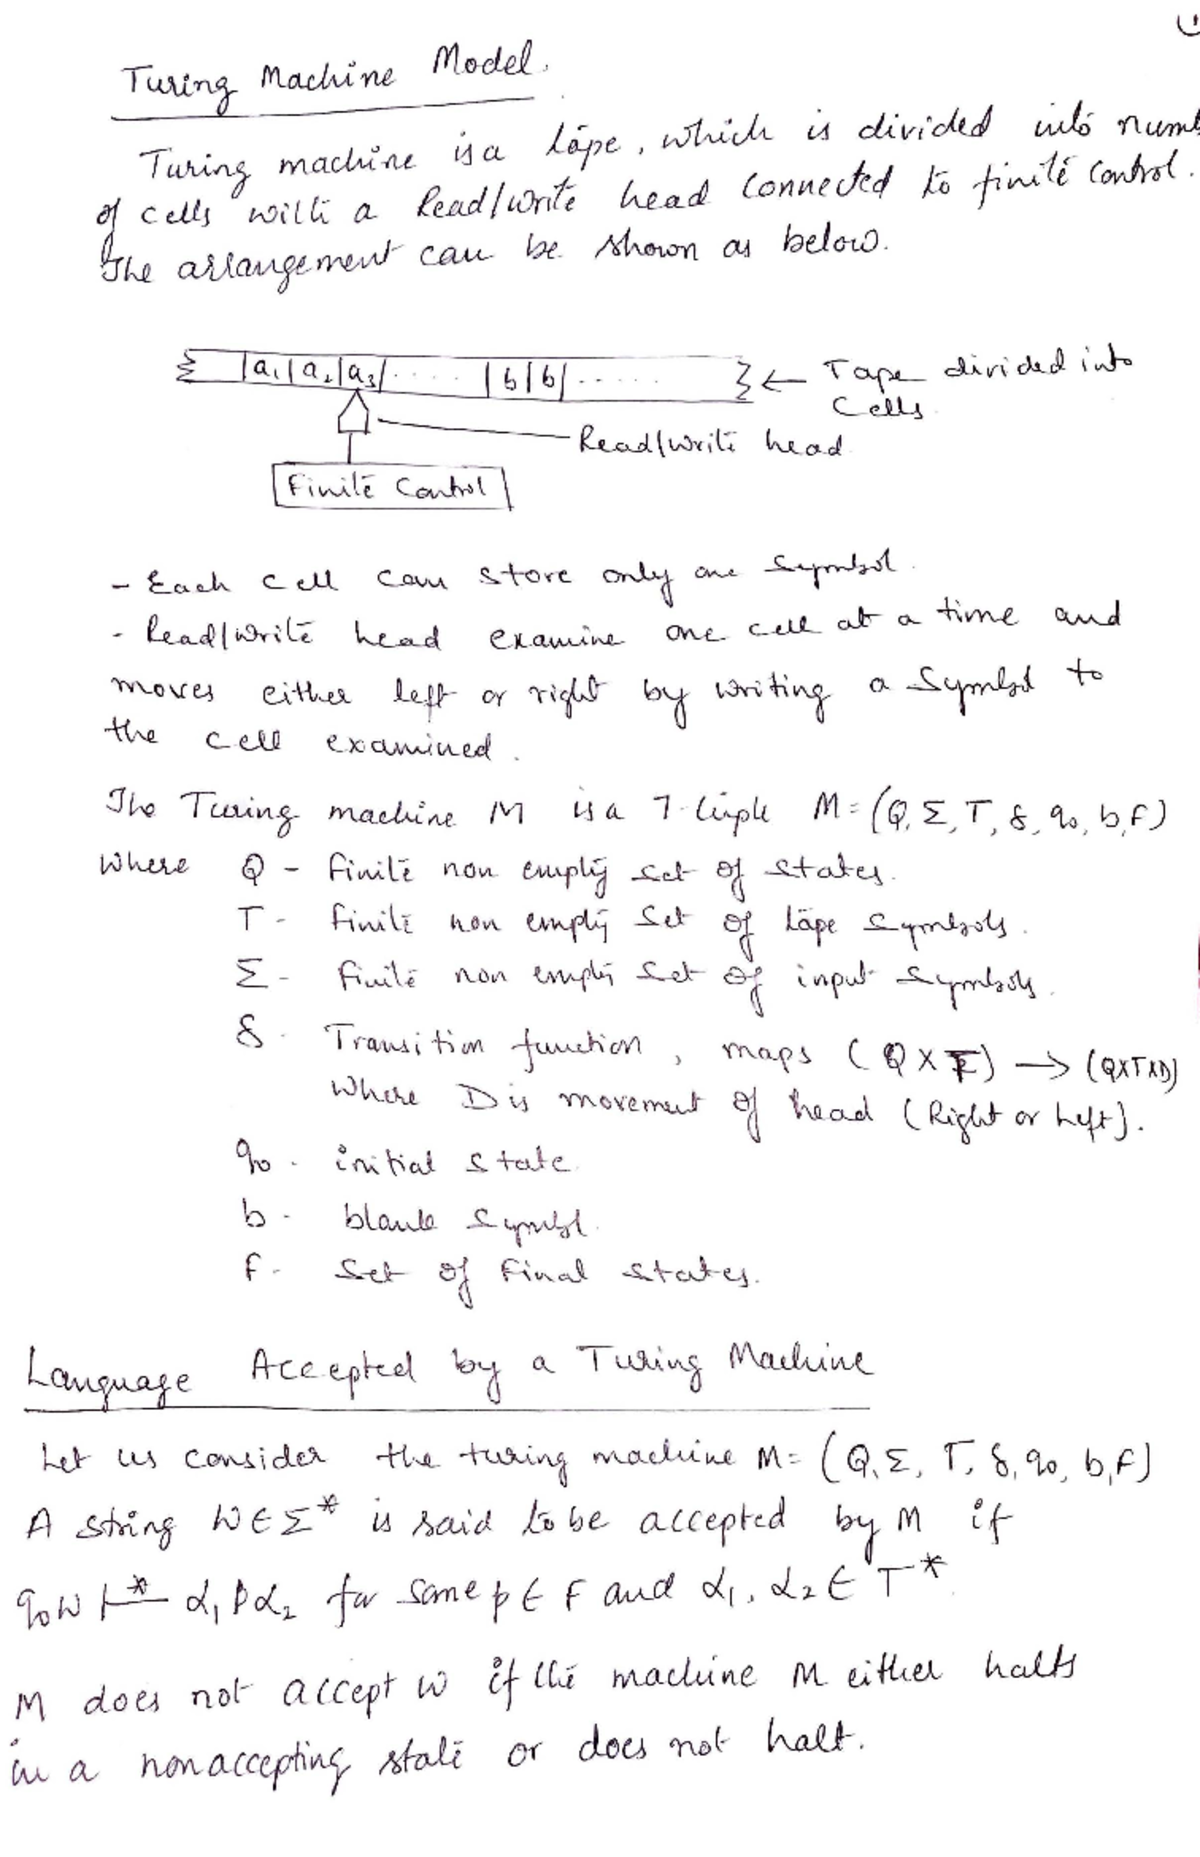 Turing Machine Model.
Turing machine is a tape, which is divided into numb
of cells with a Read/write head connected to finite control.
The arrangement can be shown as below.
a₁ | a₂ | a₃ | ..... | b | b | ...... ← Tape divided into
Cells
Read/write head
Finite Control
- Each cell can store only one symbol.
- Read/write head examine one cell at a time and
moves either left or right by writing a symbol to
the cell examined.
The Turing machine M is a 7-tuple M = (Q, Σ, T, δ, q₀, b, F)
where Q - finite non empty set of states.
T - finite non empty set of tape symbols.
Σ - finite non empty set of input symbols.
δ - Transition function, maps (Q X T) → (QXTXD)
where D is movement of head (Right or Left).
q₀ - initial state.
b - blank symbol.
F - Set of final states.
Language Accepted by a Turing Machine
Let us consider the turing machine M = (Q, Σ, T, δ, q₀, b, F)
A string W ∈ Σ* is said to be accepted by M if
q₀W ⊢* α₁ p α₂ for some p ∈ F and α₁, α₂ ∈ T*
M does not accept w if the machine M either halts
in a nonaccepting state or does not halt.